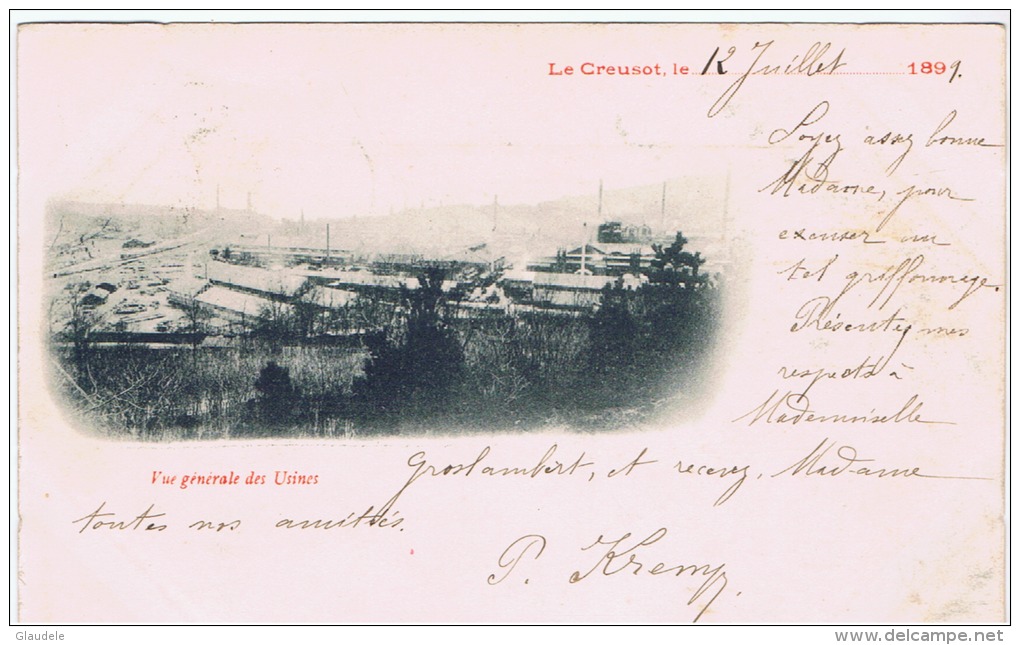 Le Creusot, le 12 Juillet 1899.
Soyez assez bonne
Madame, pour
excuser un
tel griffonnage.
Présentez mes
respects à
Mademoiselle
Groslambert, et recevez, Madame
toutes nos amitiés.
P. Kremp
Vue générale des Usines
Glaudele
www.delcampe.net